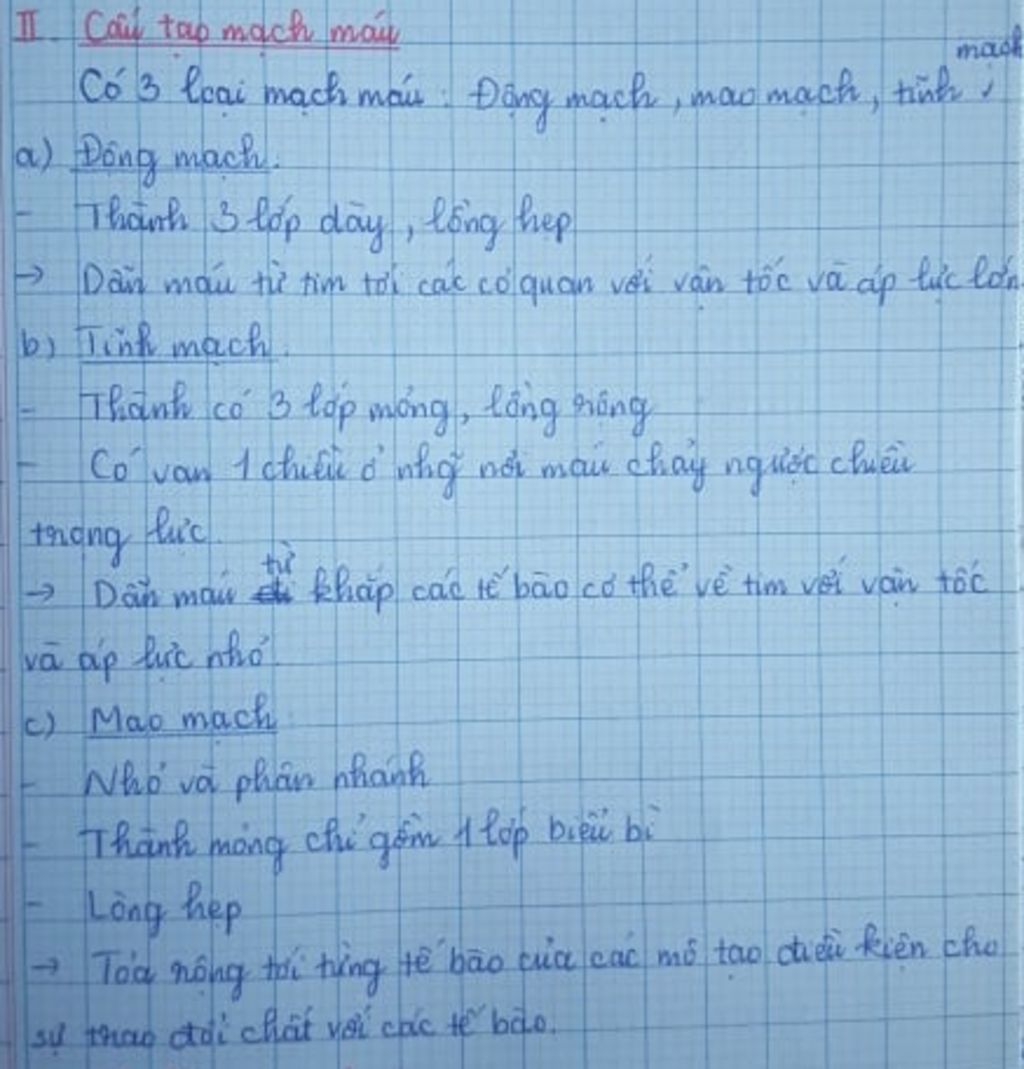 II. Cấu tạo mạch máu
Có 3 loại mạch máu: Động mạch, mao mạch, tĩnh mạch
a) Động mạch.
- Thành 3 lớp dày, lòng hẹp
→ Dẫn máu từ tim tới các cơ quan với vận tốc và áp lực lớn
b) Tĩnh mạch.
- Thành có 3 lớp mỏng, lòng rộng
- Có van 1 chiều ở nhg̃ nơi máu chảy ngược chiều
trọng lực.
→ Dẫn máu từ khắp các tế bào cơ thể về tim với vận tốc
và áp lực nhỏ.
c) Mao mạch
- Nhỏ và phân nhánh
- Thành mỏng chỉ gồm 1 lớp biểu bì
- Lòng hẹp
→ Tỏa rộng tới từng tế bào của các mô tạo điều kiện cho
sự trao đổi chất với các tế bào.